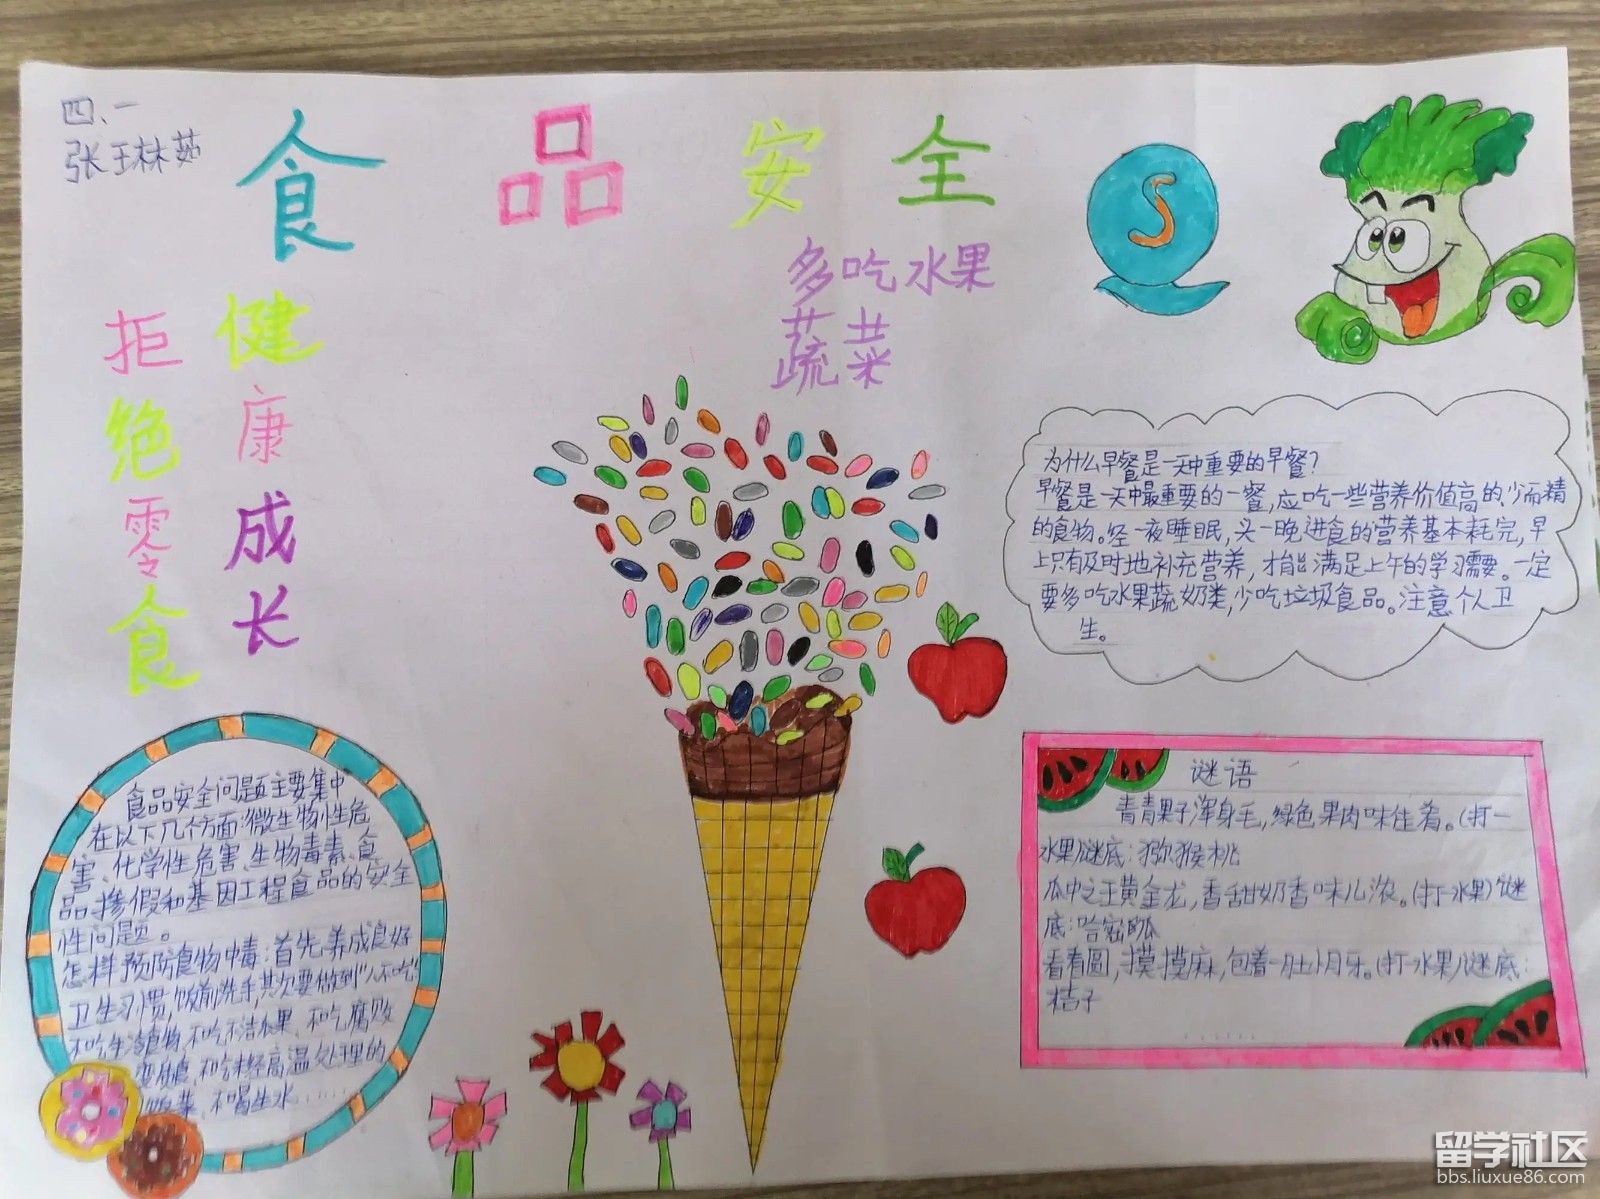 四、一
张琳茹
食品安全
多吃水果
蔬菜
S
拒绝零食
健康成长
为什么早餐是一天中重要的早餐?
早餐是一天中最重要的一餐,应吃一些营养价值高的、少而精
的食物。经一夜睡眠,头一晚进食的营养基本耗完,早
上只有及时地补充营养,才能满足上午的学习需要。一定
要多吃水果蔬奶类,少吃垃圾食品。注意个人卫
生。
食品安全问题主要集中
在以下几个方面:微生物性危
害、化学性危害、生物毒素、食
品掺假和基因工程食品的安全
性问题。
怎样预防食物中毒:首先,养成良好
卫生习惯,饭前洗手,其次要做到"八不吃"
不吃生冷食物、不吃不洁水果、不吃腐败
变质食、不吃未经高温处理的
饭菜、不喝生水……
谜语
青青果子浑身毛,绿色果肉味佳肴。(打一
水果)谜底:猕猴桃
瓜中之王黄金龙,香甜奶香味儿浓。(打一水果)谜
底:哈密瓜
看看圆,摸摸麻,包着一肚小月牙。(打一水果)谜底:
桔子
留学社区
bbs.liuxue86.com